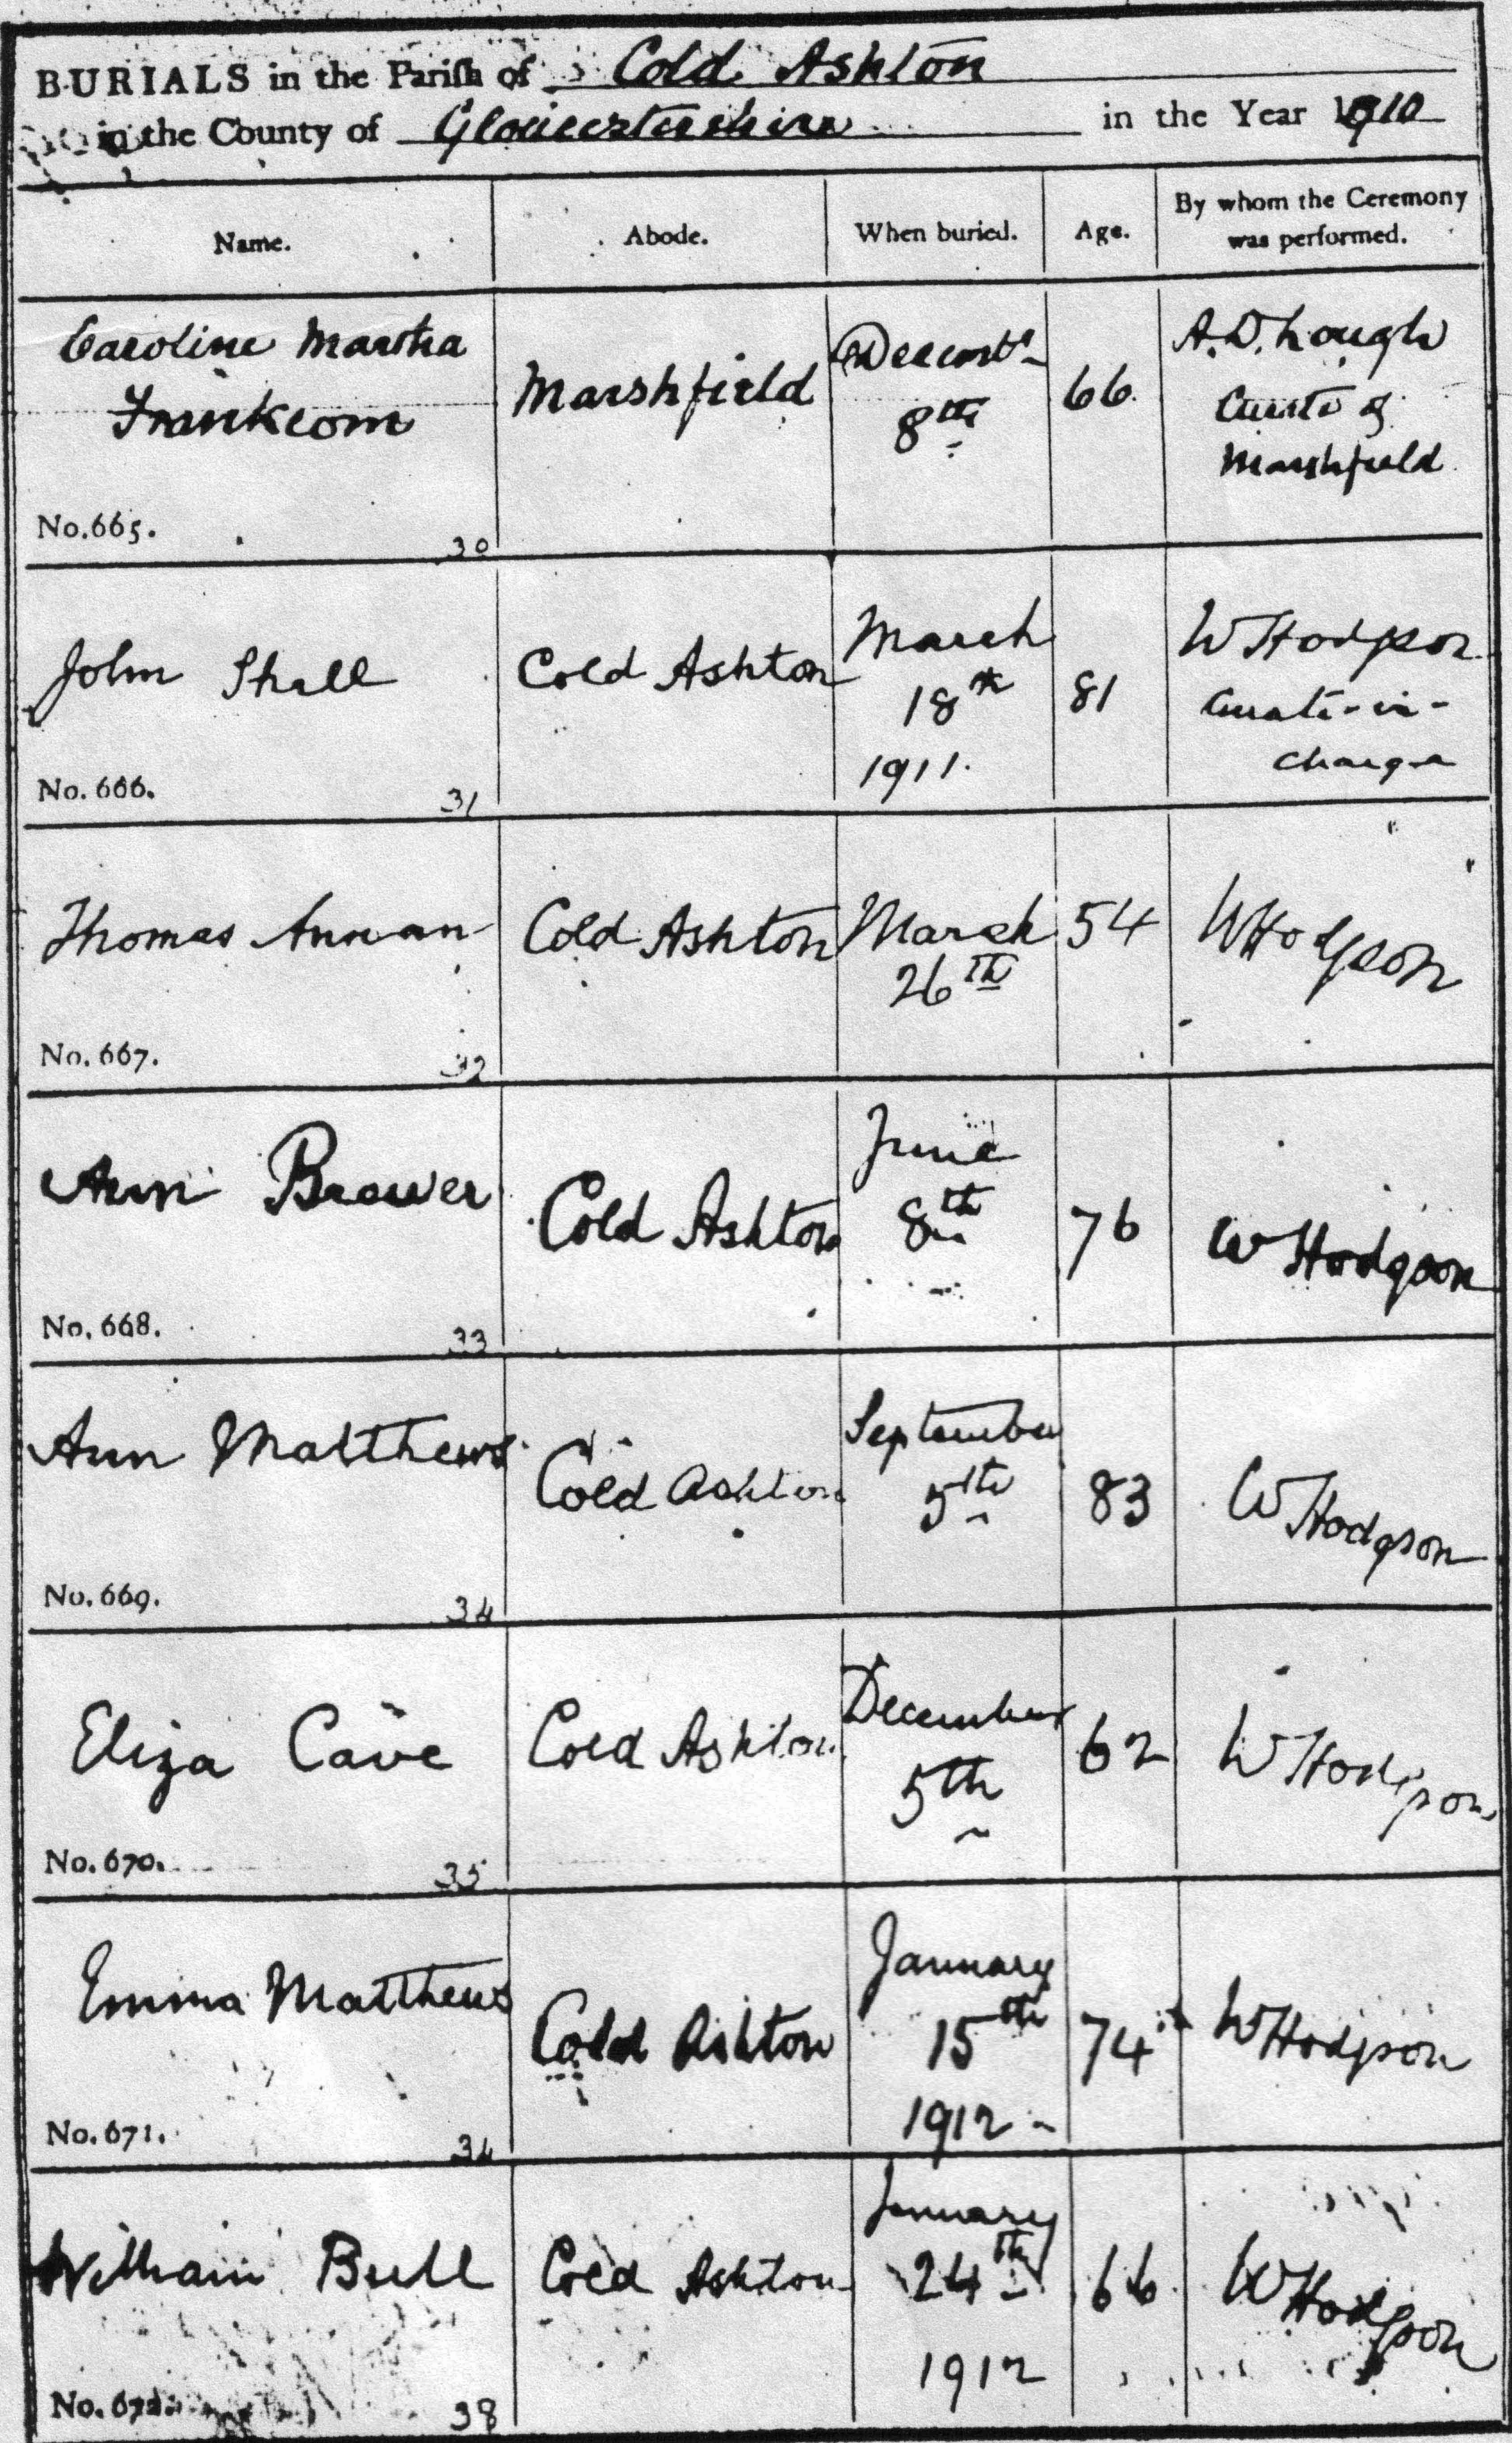 BURIALS in the Pariſh of Cold Ashton
in the County of Gloucestershire in the Year 1910
Name. Abode. When buried. Age. By whom the Ceremony was performed.
Caroline Martha
Frankcom
Marshfield
8th
66
Curate of
Marshfield
No. 665.
30
John
Cold Ashton
March
18th
1911.
81
W Hodgson
Curate-in-
charge
No. 666.
31
Thomas
Cold Ashton
March
26th
54
W Hodgson
No. 667.
32
Ann Brewer
Cold Ashton
June
8th
76
W Hodgson
No. 668.
33
Ann Matthews
Cold Ashton
September
5th
83
W Hodgson
No. 669.
34
Eliza Cave
Cold Ashton
December
5th
62
W Hodgson
No. 670.
35
Emma Matthews
Cold Ashton
January
15th
1912
74
W Hodgson
No. 671.
William Bull
Cold Ashton
January
24th
1912
66
W Hodgson
No. 672.
38